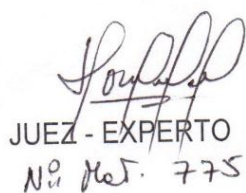 JUEZ - EXPERTO
Nº Mat. 775